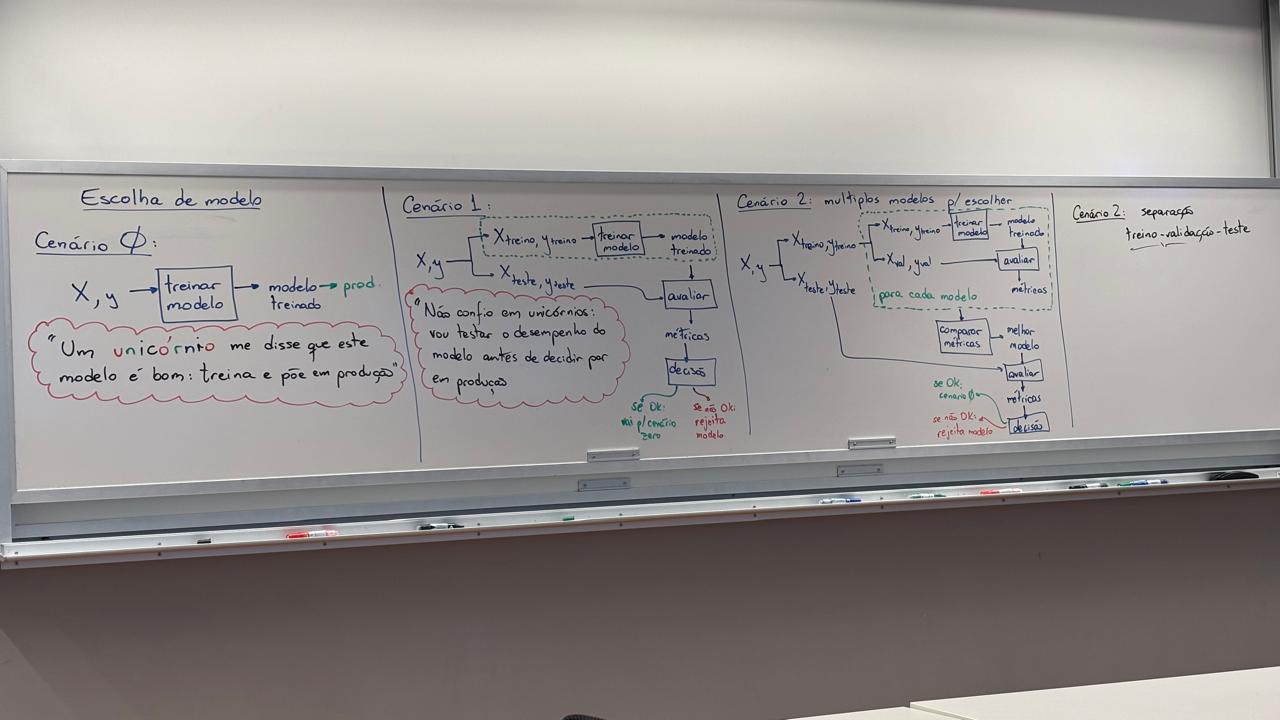 Escolha de modelo
Cenário Ø:
X, y
treinar
modelo
modelo
treinado
prod.
"Um unicórnio me disse que este
modelo é bom: treina e põe em produção"
Cenário 1:
X, y
Xtreino, ytreino
treinar
modelo
modelo
treinado
Xteste, yteste
avaliar
métricas
decisão
se Ok:
vai p/ cenário
zero
se não Ok:
rejeita
modelo
"Não confio em unicórnios:
vou testar o desempenho do
modelo antes de decidir por
em produção
Cenário 2: multiplos modelos p/ escolher
X, y
Xtreino, ytreino
Xteste, yteste
Xtreino, ytreino
treinar
modelo
modelo
treinado
Xval, yval
avaliar
métricas
para cada modelo
comparar
métricas
melhor
modelo
avaliar
métricas
decisão
se Ok:
cenario Ø
se não Ok:
rejeita modelo
Cenário 2: separação
treino-validação-teste